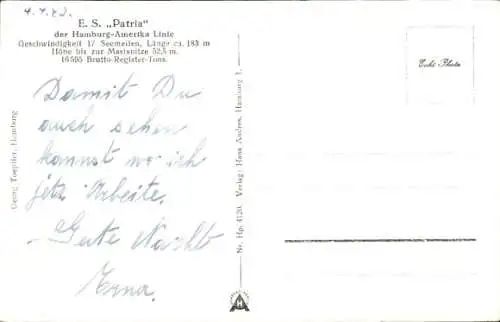 4.7.42.
E. S. „Patria“
der Hamburg-Amerika Linie
Geschwindigkeit 17 Seemeilen, Länge ca. 183 m
Höhe bis zur Mastspitze 52,5 m.
16595 Brutto-Register-Tons.
Damit Du
auch sehen
kannst wo ich
jetz Arbeite.
Gute Nacht
Erna.
Georg Toepffer, Hamburg
Nr. Hp. 4120. Verlag: Hans Andres, Hamburg 1.
Echt Photo